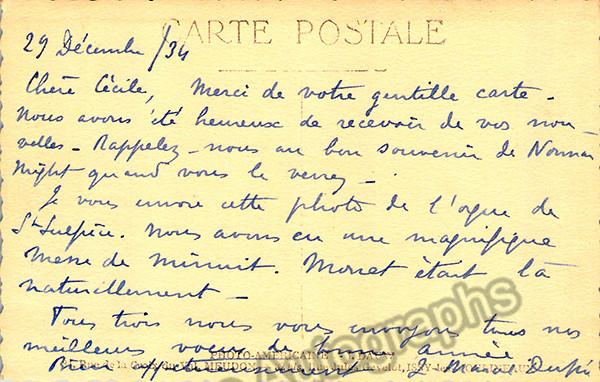 CARTE POSTALE
29 Décembre / 34
Chère Cécile, Merci de votre gentille carte -
Nous avons été heureux de recevoir de vos nou-
velles - Rappelez-nous au bon souvenir de Norman
Wright quand vous le verrez -
Je vous envoie cette photo de l'orgue de
St Sulpice. Nous avons eu une magnifique
Messe de minuit. Monet était là
naturellement -
Tous trois nous vous envoyons tous nos
meilleurs voeux de bonne année.
PHOTO-AMERICAINE
Bien affectueusement Marcel Dupré
MEUDON
Autographs